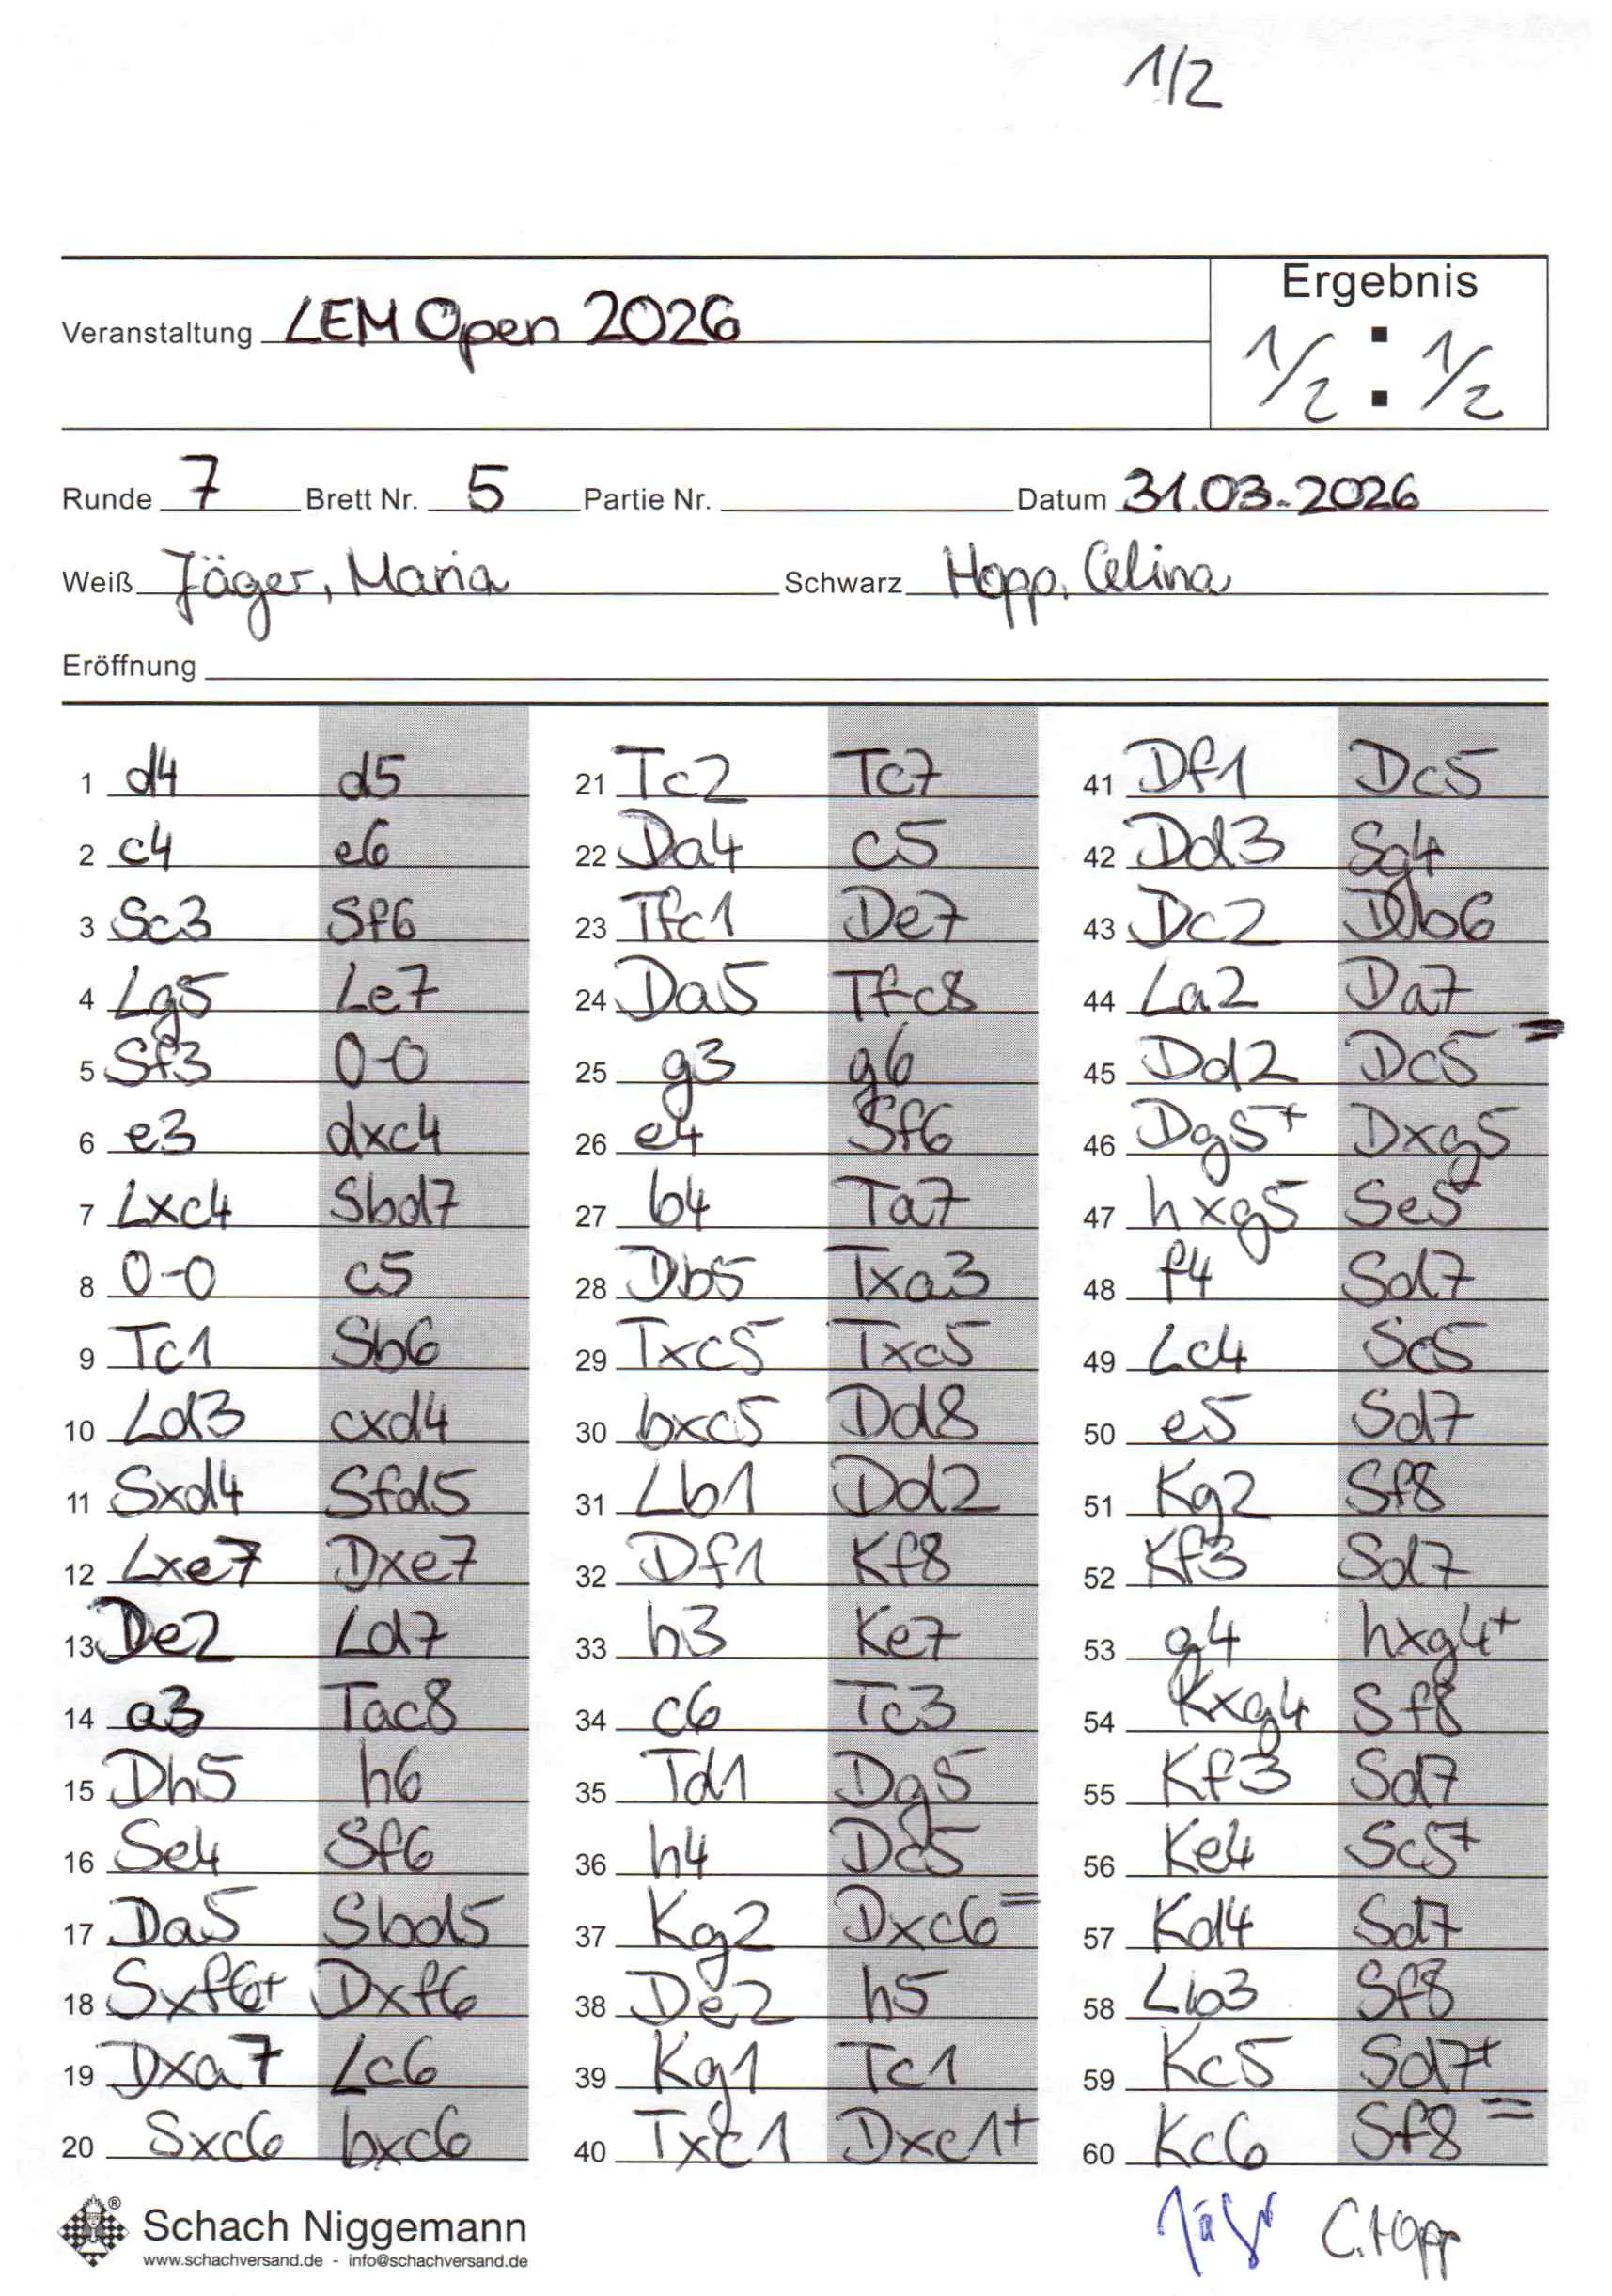 1/2
Ergebnis
Veranstaltung LEM Open 2026
1/2 : 1/2
Runde 7 Brett Nr. 5 Partie Nr. Datum 31.03.2026
Weiß Jäger, Maria Schwarz Hopp, Celina
Eröffnung
1 d4 d5 21 Tc2 Tc7 41 Df1 Dc5
2 c4 e6 22 Da4 c5 42 Dd3 Sg4
3 Sc3 Sf6 23 Tfc1 De7 43 Dc2 Db6
4 Lg5 Le7 24 Da5 Tfc8 44 La2 Da7
5 Sf3 0-0 25 g3 g6 45 Dd2 Dc5 =
6 e3 dxc4 26 e4 Sf6 46 Dg5+ Dxg5
7 Lxc4 Sbd7 27 b4 Ta7 47 hxg5 Se5
8 0-0 c5 28 Db5 Txa3 48 f4 Sd7
9 Tc1 Sb6 29 Txc5 Txc5 49 Lc4 Sc5
10 Ld3 cxd4 30 bxc5 Dd8 50 e5 Sd7
11 Sxd4 Sfd5 31 Lb1 Dd2 51 Kg2 Sf8
12 Lxe7 Dxe7 32 Df1 Kf8 52 Kf3 Sd7
13 De2 Ld7 33 h3 Ke7 53 g4 hxg4+
14 a3 Tac8 34 c6 Tc3 54 Kxg4 Sf8
15 Dh5 h6 35 Td1 Dg5 55 Kf3 Sd7
16 Se4 Sf6 36 h4 Dc5 56 Ke4 Sc5+
17 Da5 Sbd5 37 Kg2 Dxc6 = 57 Kd4 Sd7
18 Sxf6+ Dxf6 38 De2 h5 58 Lb3 Sf8
19 Dxa7 Lc6 39 Kg1 Tc1 59 Kc5 Sd7+
20 Sxc6 bxc6 40 Txc1 Dxc1+ 60 Kc6 Sf8 =
® Schach Niggemann
www.schachversand.de - info@schachversand.de
Jäger C. Hopp